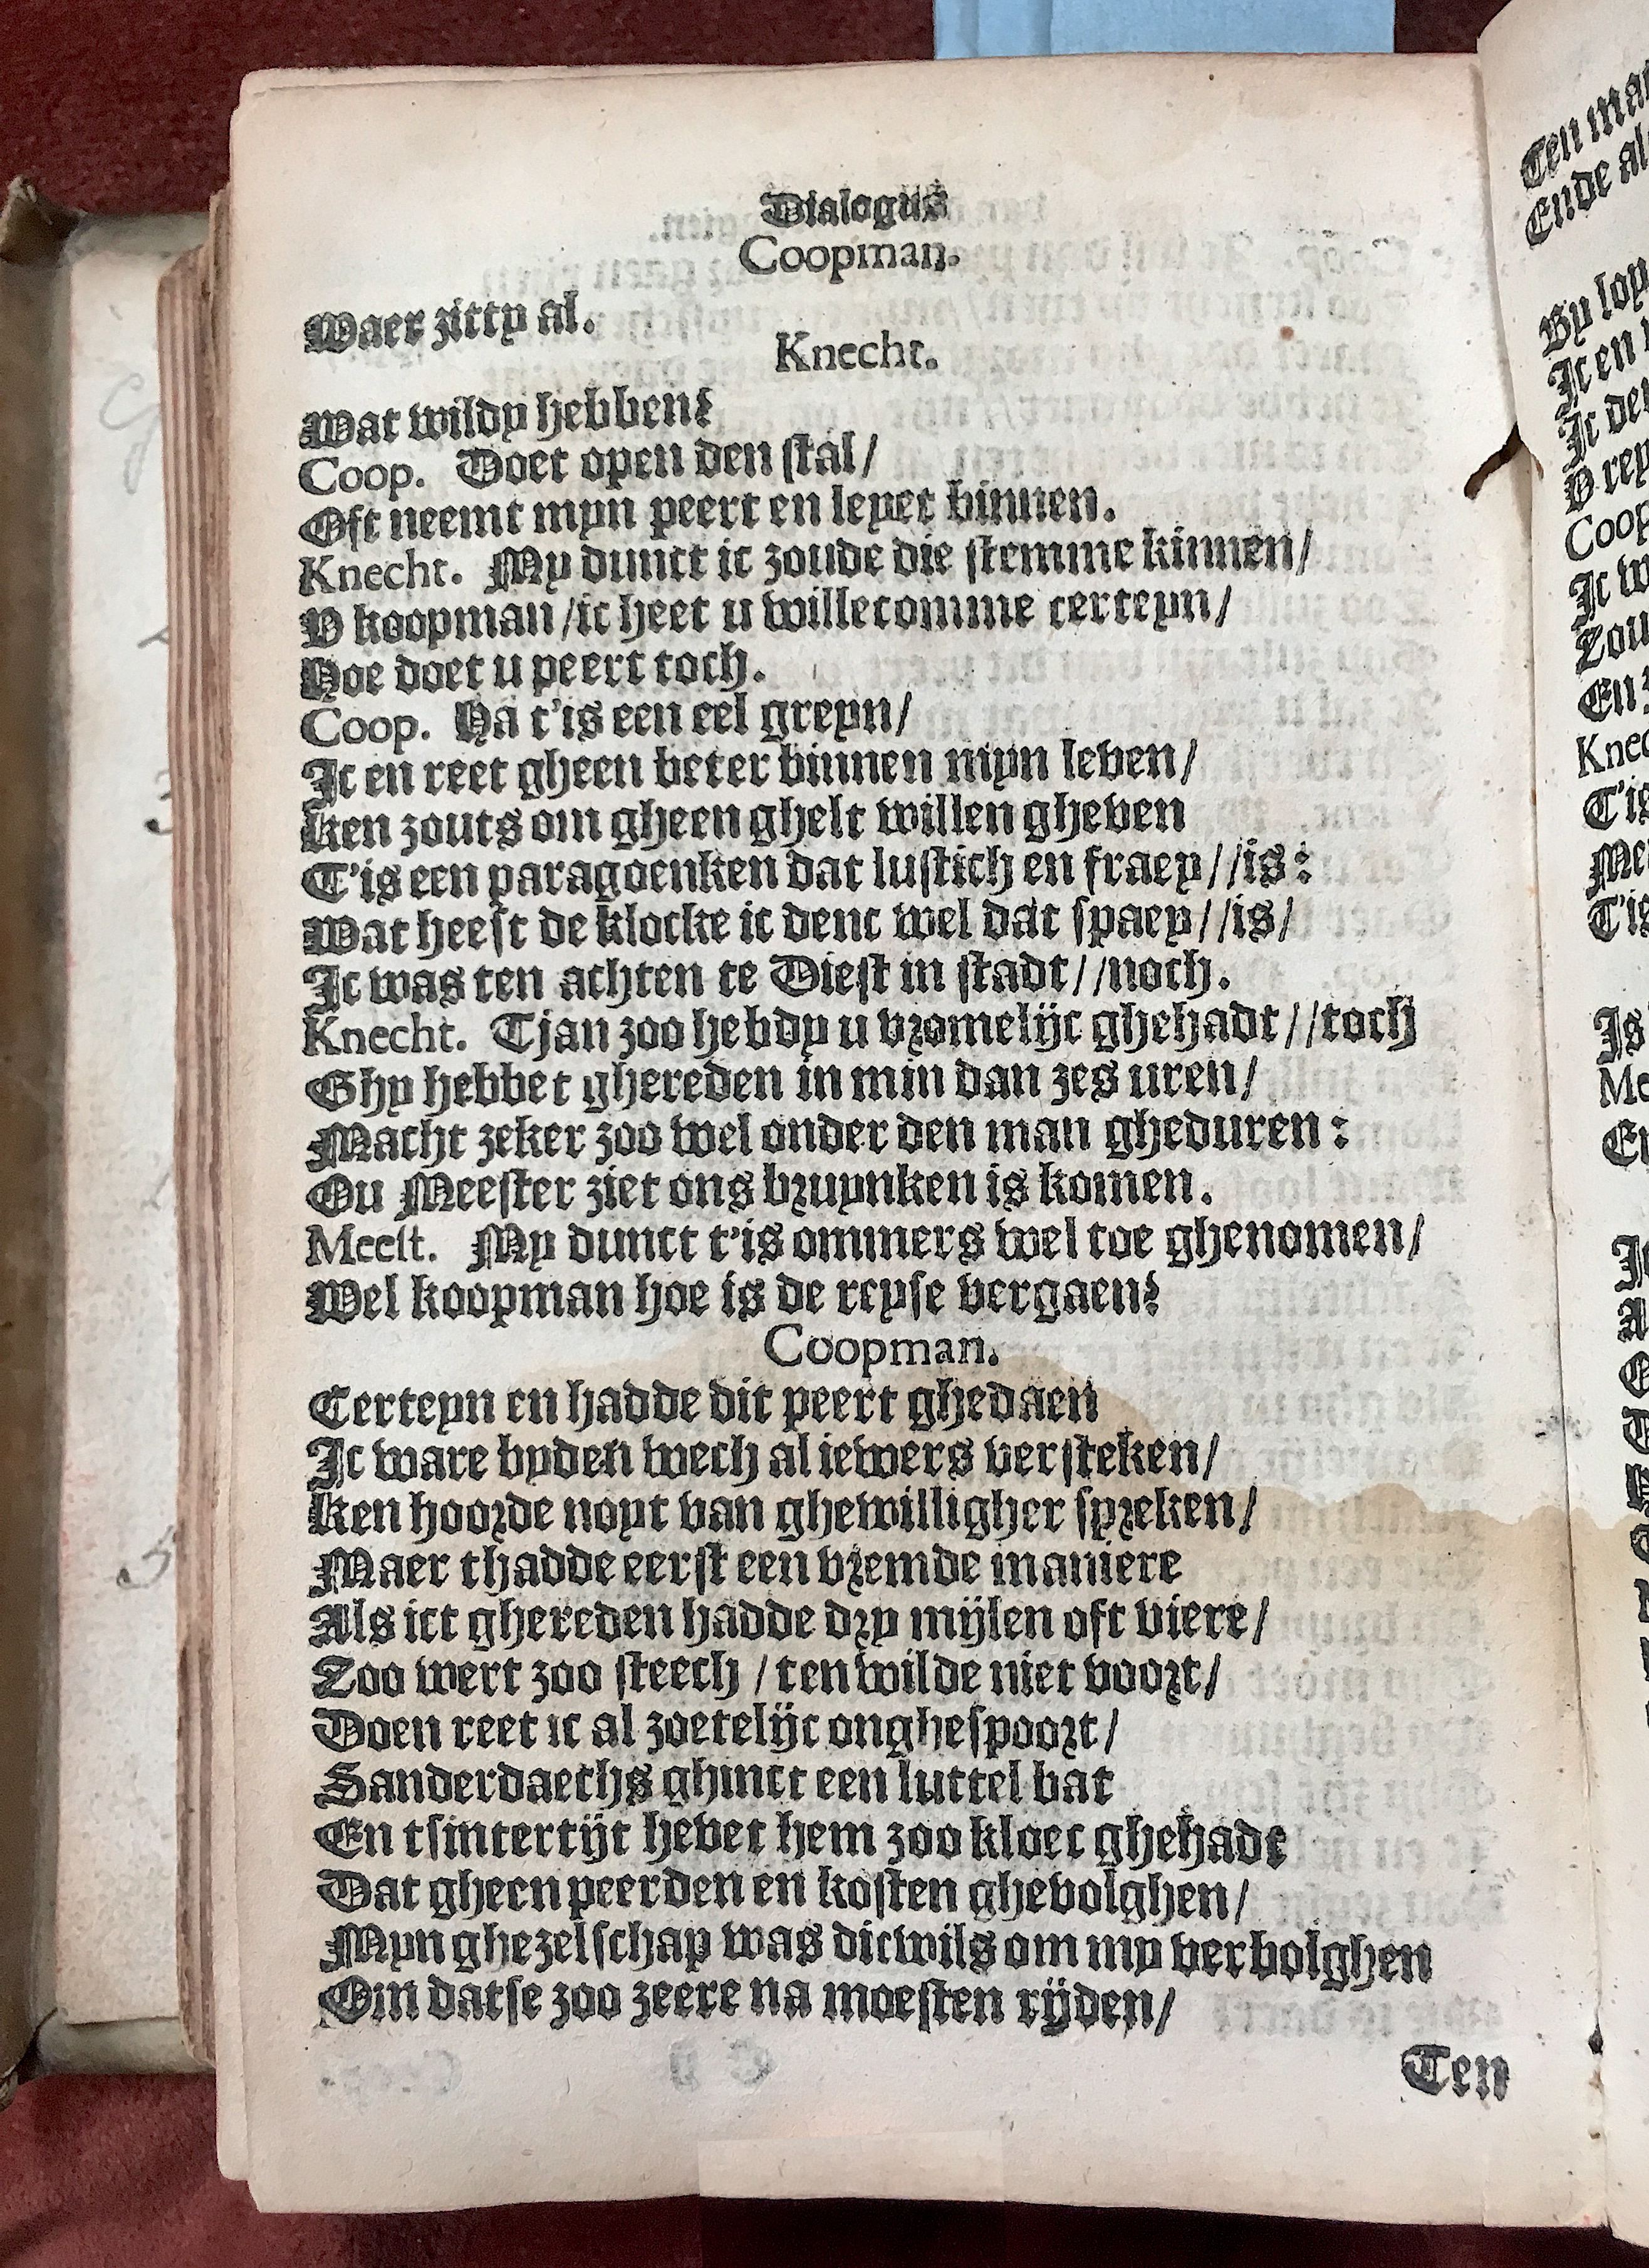 Dialogus
Coopman.
Waer zitty al.
Knecht.
Wat wildy hebben?
Coop. Doet open den stal/
Oft neemt myn peert en leyet binnen.
Knecht. My dunct ic zoude die stemme kinnen/
O koopman/ic heet u willecomme certeyn/
Hoe doet u peert toch.
Coop. Ha t'is een eel greyn/
Ic en reet gheen beter binnen myn leven/
Ken zouts om gheen ghelt willen gheven
T'is een paragoenken dat lustich en fraey//is:
Wat heeft de klocke ic denc wel dat spaey//is/
Ic was ten achten te Diest in stadt//noch.
Knecht. Tjan zoo hebdy u vromelijc ghehadt//toch
Ghy hebbet ghereden in min dan zes uren/
Macht zeker zoo wel onder den man gheduren:
Ou Meester ziet ons bruynken is komen.
Meest. My dunct t'is ommers wel toe ghenomen/
Wel koopman hoe is de reyse vergaen?
Coopman.
Certeyn en hadde dit peert ghedaen
Ic ware byden wech al iewers versteken/
Ken hoorde noyt van ghewilligher spreken/
Maer thadde eerst een vremde maniere
Als ict ghereden hadde dry mijlen oft viere/
Zoo wert zoo steech / ten wilde niet voort/
Doen reet ic al zoetelijc onghespoort/
Sanderdaechs ghinct een luttel bat
En tsintertijt hevet hem zoo kloec ghehadt
Dat gheen peerden en kosten ghevolghen/
Myn ghezelschap was dicwils om my verbolghen
Om datse zoo zeere na moesten rijden/
Ten
Ten
Ende
By
Ic en
Ic
O
Coop
Ic
Zou
En
Knec
T'is
T'is
Is